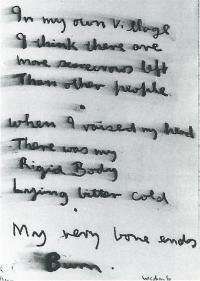 In my own Village
I think there are
more scarecrows left
Than other people
when I raised my head
There was my
Rigid Body
Lying bitter cold
May very bone ends
Burn.